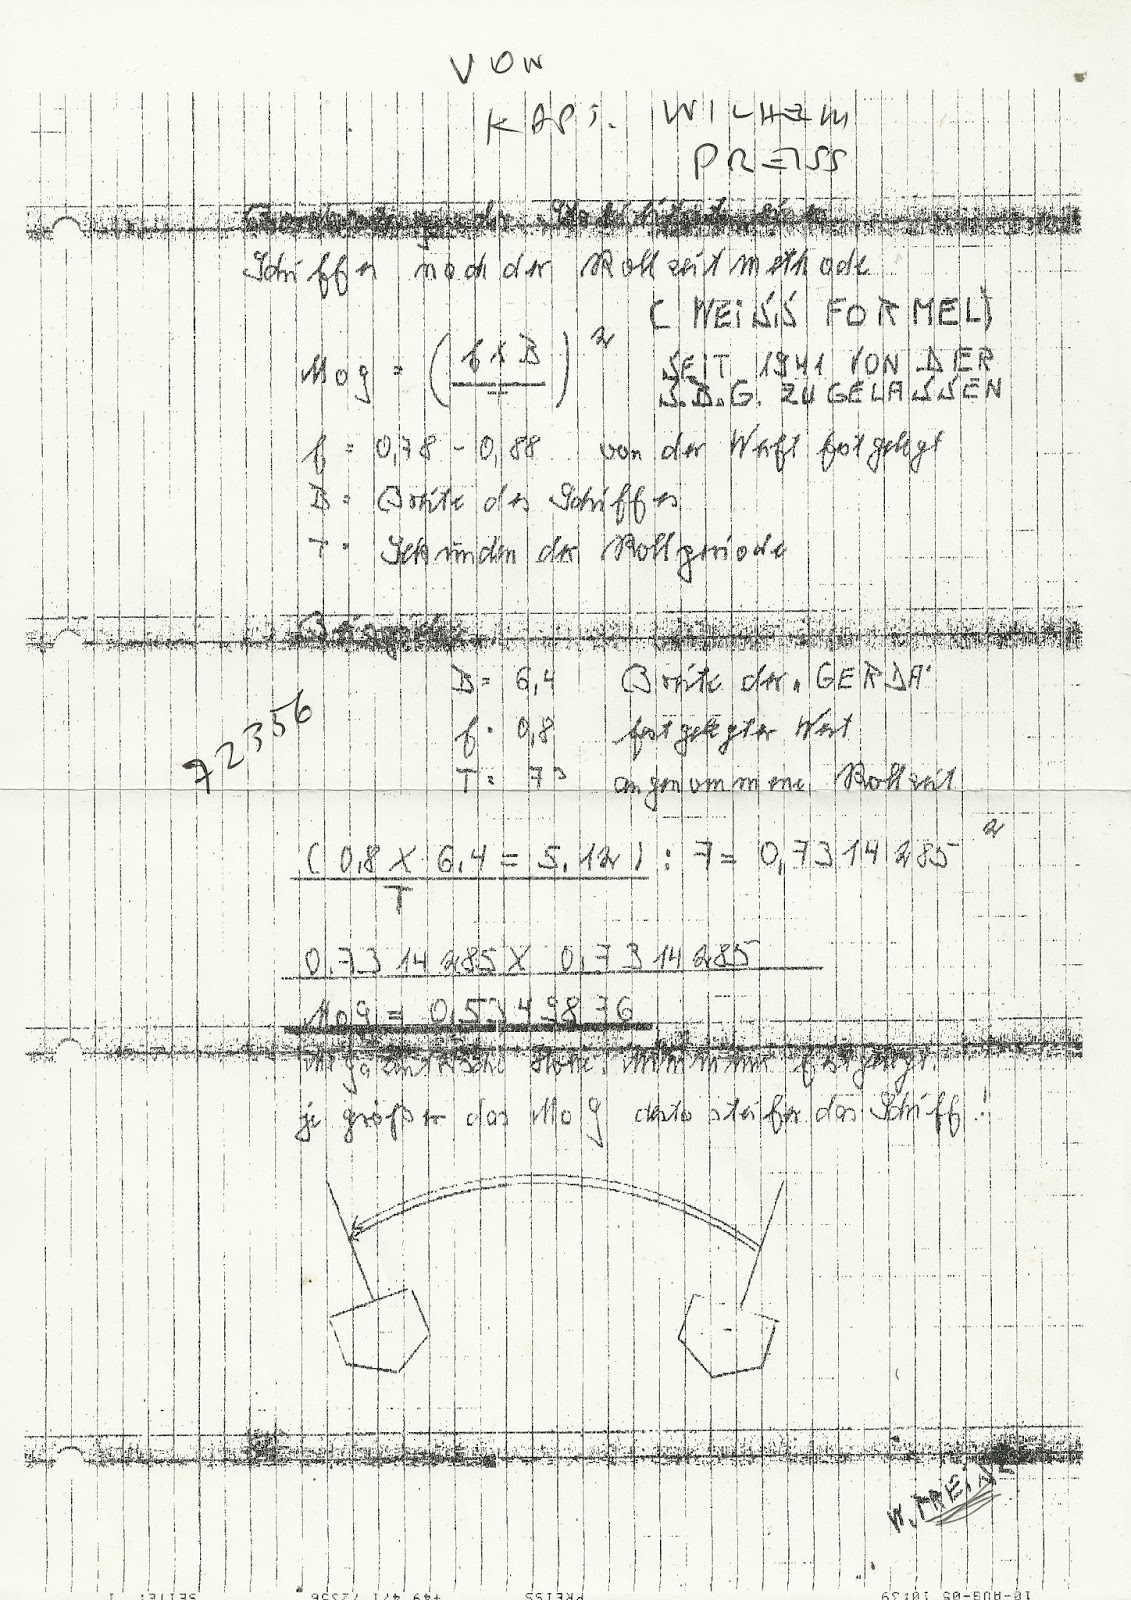 VON
KAPT. WILHELM
PREISS
Berechnung der Stabilität eines
Schiffes nach der Rollzeitmethode
( WEISS FORMEL)
MoG = ( f x B / = )²
SEIT 1941 VON DER
S.B.G. ZUGELASSEN
f = 0,78 - 0,88 von der Werft festgelegt
B = Breite des Schiffes
T = Sekunden der Rollperiode
Beispiel
B = 6,4 Breite der "GERDA"
f = 0,8 festgelegter Wert
T = 7 angenommene Rollzeit
72356
( 0,8 X 6,4 = 5,12 ) : 7 = 0,7314285²
T
0,7314285 X 0,7314285
MoG = 0,5349876
Metazentrische Höhe. Minimum festgelegt.
je größer das MoG desto steifer das Schiff !
W. PREISS
10-AUG-05 10:39 PREISS +49 471 72356 SEITE: 1